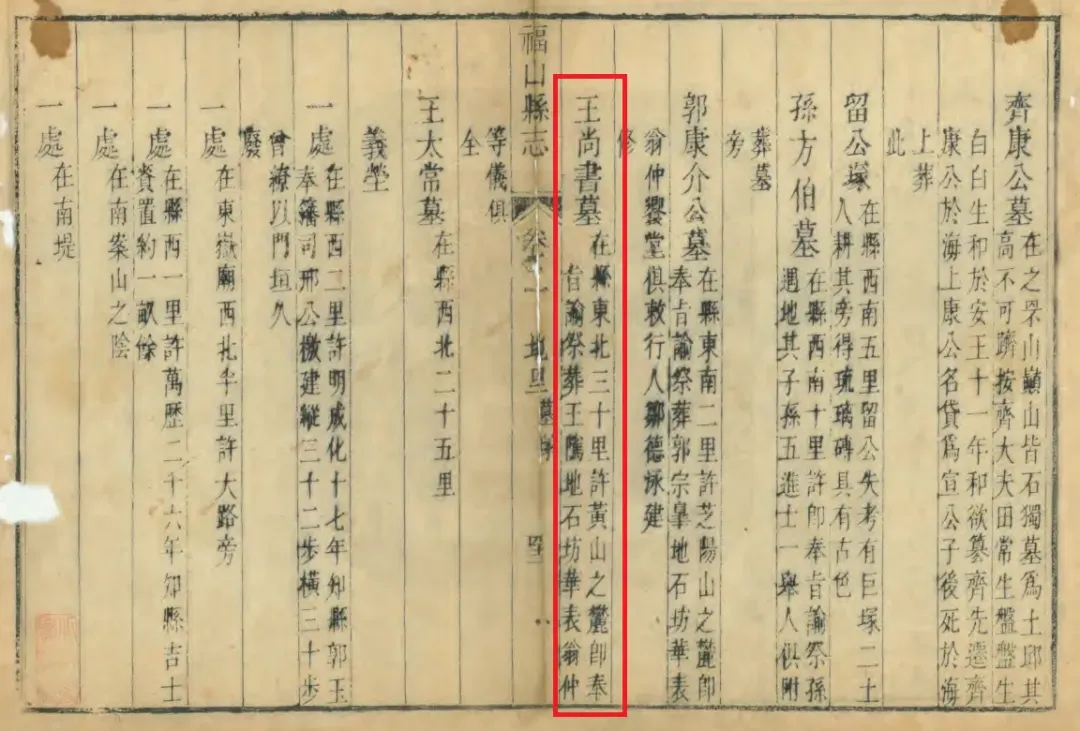 齊康公墓
在之罘山巔山皆石獨墓爲土邱其
高不可躋按齊大夫田常生盤盤生
白白生和於安王十一年和欲篡齊先遷齊
康公於海上康公名貸爲宣公子後死於海
上葬
此
留公塚
在縣西南五里留公失考有巨塚二土
人耕其旁得琉璃磚具有古色
孫方伯墓
在縣西南十里許卽奉旨諭祭孫
遇地其子孫五進士一舉人俱附
葬墓
旁
郭康介公墓
在縣東南二里許芝陽山之麓卽
奉旨諭祭葬郭宗臯地石坊華表
翁仲饗堂俱敕行人鄒德泳建
修
王尚書墓
在縣東北三十里許黃山之麓卽奉
旨諭祭葬王隲地石坊華表翁仲
福山縣志
卷之一 地里
等儀俱
全
王太常墓
在縣西北二十五里
義塋
一處
在縣西二里許明成化十七年知縣郭玉
奉藩司邢公檄建縱三十二步橫三十步
曾繚以門垣久
廢
一處
在東嶽廟西北半里許大路旁
一處
在縣西一里許萬歷二十六年知縣吉士
賫置約一畝餘
一處
在南案山之陰
一處
在南堤